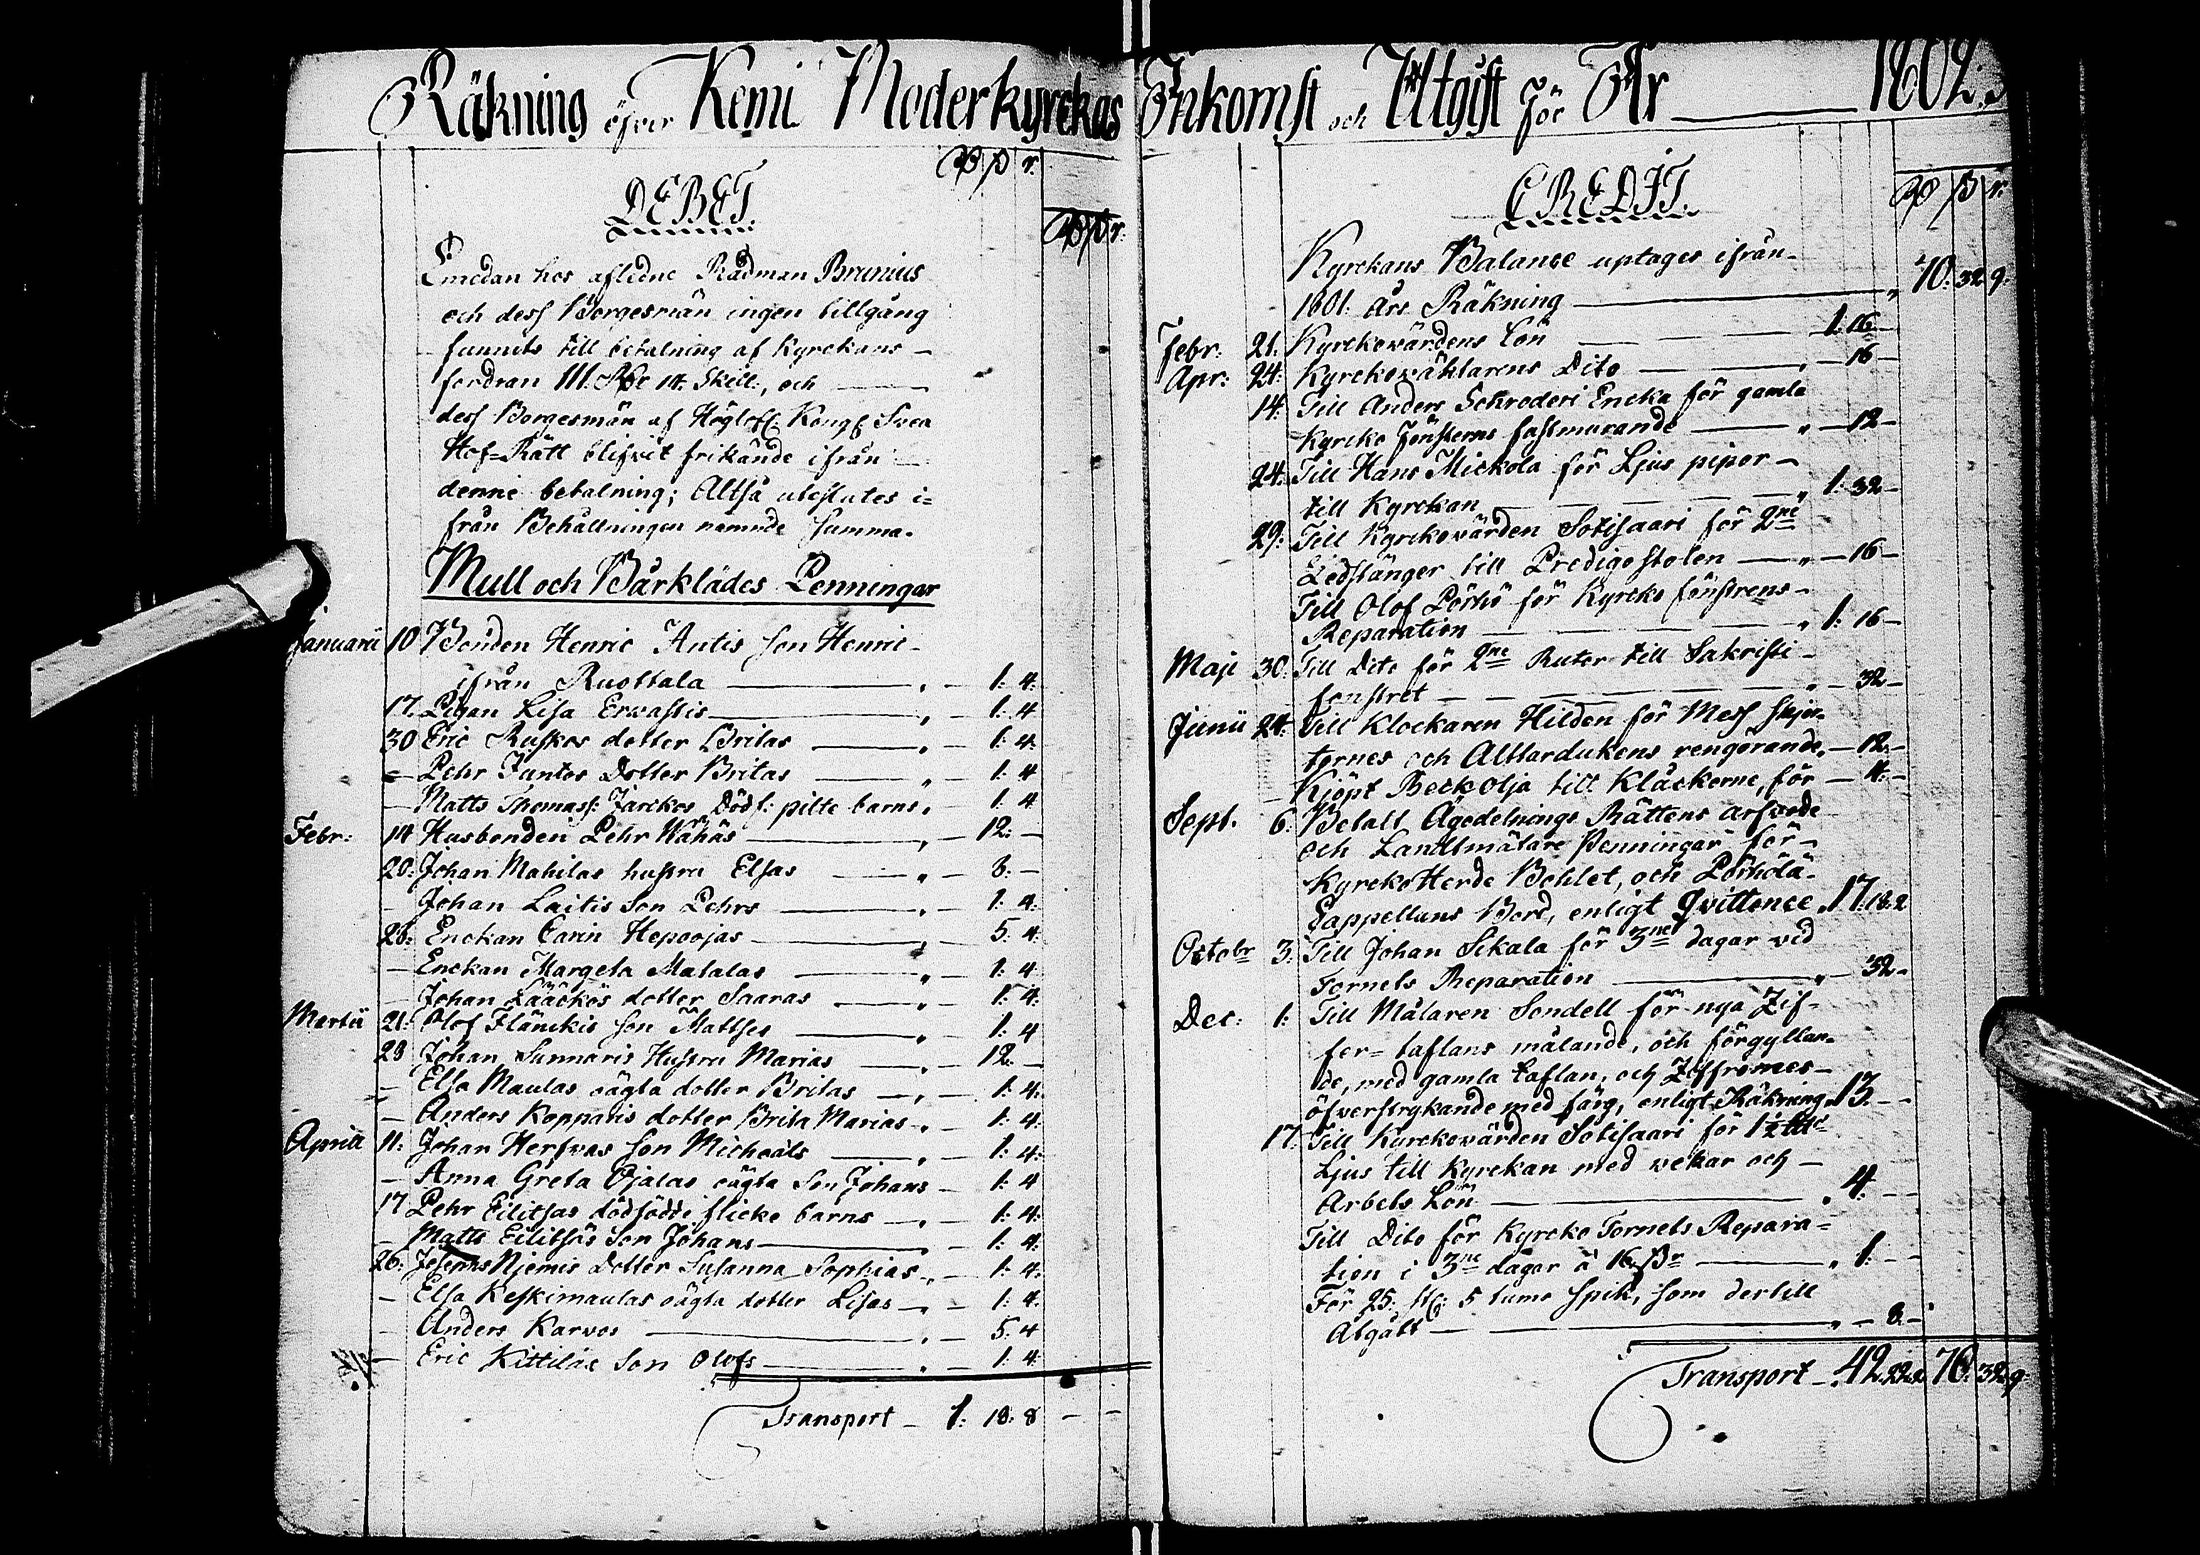 Räkning öfver Kemi Moderkyrckas Inkomst och Utgift för År 1802.
DEBET.
Emedan hos aflidne Rådman Brunius
och dess Borgesmän ingen tillgång
funnits till betalning af Kyrckans
fordran 111. Rdr 14. Skill:, och
dess Borgesmän af Höglofl. Kongl. Svea
Hof-Rätt blifvit frikände ifrån
denne betalning; Altså uteslutes i=
från Behållningen nämnde summa.
Mull och Bårklädes Penningar
Januarii 10 Bonden Henric Antis son Henric
ifrån Ruottala 1: 4.
17. Pigan Lisa Erwastis 1: 4
30 Eric Ruskos dotter Britas 1: 4.
Pehr Juntos Dotter Britas 1: 4
Matts Thomass: Jarckos Dödf: pilte barns 1: 4
Febr: 14 Husbonden Pehr Wähäs 12: —
20: Johan Mahilas hustru Elsas 8. —
Johan Laitis Son Pehrs 1: 4.
26: Enckan Carin Hepoojas 5. 4.
Enckan Margeta Matalas 1: 4
Johan Lääckös dotter Saaras 1: 4.
Martii 21: Olof Flänckis son Mattses 1: 4
28 Johan Sunnaris Hustru Marias 12. —
Elsa Maulas oägta dotter Britas 1: 4.
Anders Kopparis dotter Brita Marias 1: 4:
Aprill 11: Johan Herfvas son Michaels 1: 4:
Anna Greta Ojalas oägta Son Johans 1: 4
17 Pehr Eilitsas dödfödde flicke barns 1: 4:
Matts Eilitsäs Son Johans 1: 4:
26: Josephs Njemis Dotter Susanna Sophias 1: 4.
Elsa Keskimaulas oägta dotter Lisas 1: 4.
Anders Karvos 5. 4
Eric Kittiläs Son Olofs 1: 4.
Transport 1: 18: 8
CREDIT.
Kyrckans Balance uptages ifrån
1801. års Räkning 70: 32. 9.
Febr: 21. Kyrckovärdens Lön 1. 16
Apr: 24: Kyrckoväktarens Dito 16
14: Till Anders Schroderi Encka för gamla
Kyrcko Fönsterns fastmurande 12
24: Till Hans Mickola för Ljus pipor
till Kyrckan 1: 32
29: Till Kyrckovärden Sotisaari för 2ne
Ledstänger till Predigostolen 16
Till Olof Pörhö för Kyrcko fönstrens
Reparation 1: 16
Maji 30: Till Dito för 2ne Rutor till Sakristi
fönstret 32
Junii 24: Till Klockaren Hilden för Mess skjor=
tornes och Altardukens rengörande 12.
Kjöpt Beckolja till Klåckorne, för 4.
Sept. 6: Betalt Ägodelnings Rättens arfvode
och Landtmätare Penningar för
Kyrcko Herde Bohlet, och Pörhölä
Cappellans Bord, enligt Qvittence 17: 18. 2
Octobr 3: Till Johan Sikala för 3ne dagar vid
Tornets Reparation 32
Dec: 1: Till Målaren Sondell för nya Zif=
fer= taflans målande, och förgyllan=
de, med gamla taflan, och Ziffrornes
öfverstrykande med färg, enligt Räkning 13.
17: Till Kyrckovärden Sotisaari för 1½
Ljus till Kyrckan med vekar och
Arbets Lön 4.
Till Dito för Kyrcko Tornets Repara=
tion i 3ne dagar à 16 ßr 1:
För 25: st: 5 tums spik, som dertill
Åtgått 8.
Transport 42. 22. 2 70. 32. 9.